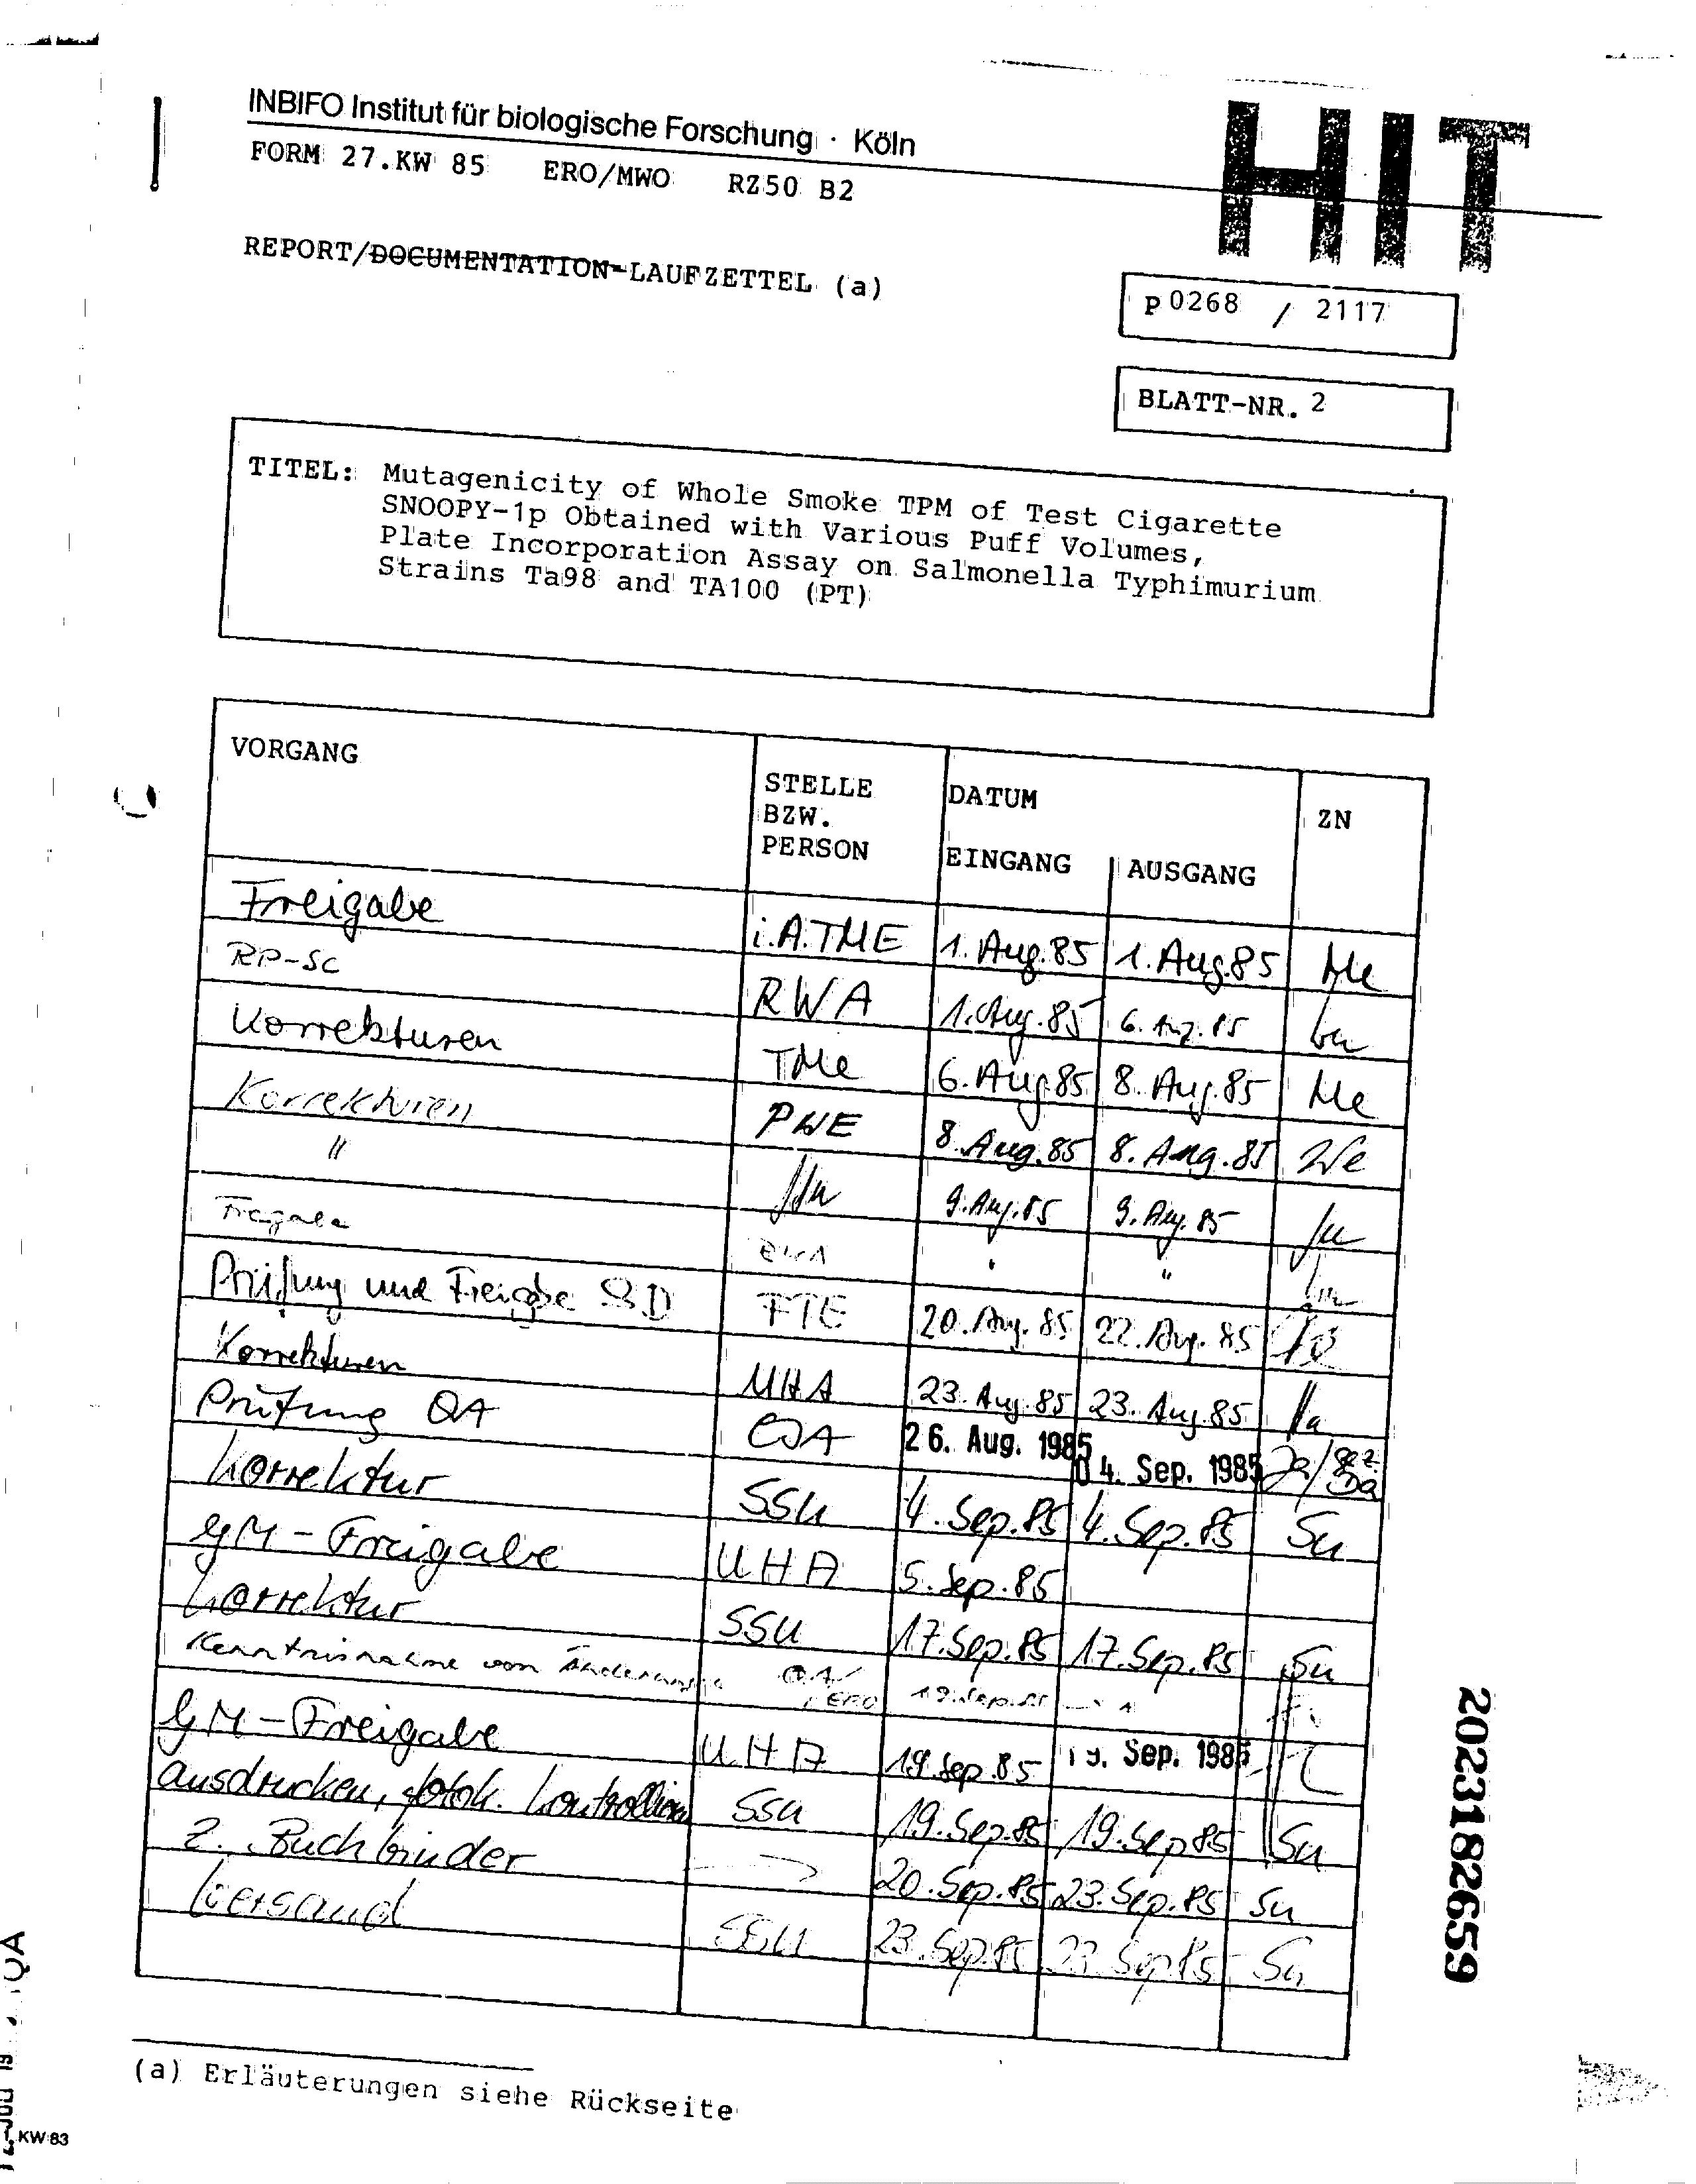 INBIFO Institut für biologische Forschung · Köln
HIT
FORM 27.KW 85 ERO/MWO RZ50 B2
REPORT/DOCUMENTATION-LAUFZETTEL (a)
P 0268 / 2117
BLATT-NR. 2
TITEL: Mutagenicity of Whole Smoke TPM of Test Cigarette
SNOOPY-1p Obtained with Various Puff Volumes,
Plate Incorporation Assay on Salmonella Typhimurium
Strains Ta98 and TA100 (PT)
VORGANG STELLE BZW. PERSON DATUM EINGANG AUSGANG ZN
Freigabe i.A.TME 1. Aug. 85 1. Aug. 85 Me
RP-SC RWA 1. Aug. 85 6. Aug. 85
Korrekturen TMe 6. Aug. 85 8. Aug. 85 Me
Korrekturen PWE 8. Aug. 85 8. Aug. 85 We
" 9. Aug. 85 9. Aug. 85
Freigabe RWA " "
Prüfung und Freigabe SD FTE 20. Aug. 85 22. Aug. 85
Korrekturen UHA 23. Aug. 85 23. Aug. 85 Ha
Prüfung QA QA 26. Aug. 1985 04. Sep. 1985
Korrektur SSU 4. Sep. 85 4. Sep. 85 Su
GM-Freigabe UHA 5. Sep. 85
Korrektur SSU 17. Sep. 85 17. Sep. 85 Su
Kenntnisnahme von Änderungen QA/ERO 19. Sep. 85
GM-Freigabe UHA 19. Sep. 85 19. Sep. 1985
ausdrucken, fotok. Kontrollieren SSU 19. Sep. 85 19. Sep. 85 Su
z. Buchbinder 20. Sep. 85 23. Sep. 85 Su
Versand SSU 23. Sep. 85 23. Sep. 85 Su
(a) Erläuterungen siehe Rückseite
2023182659
QA
KW 83